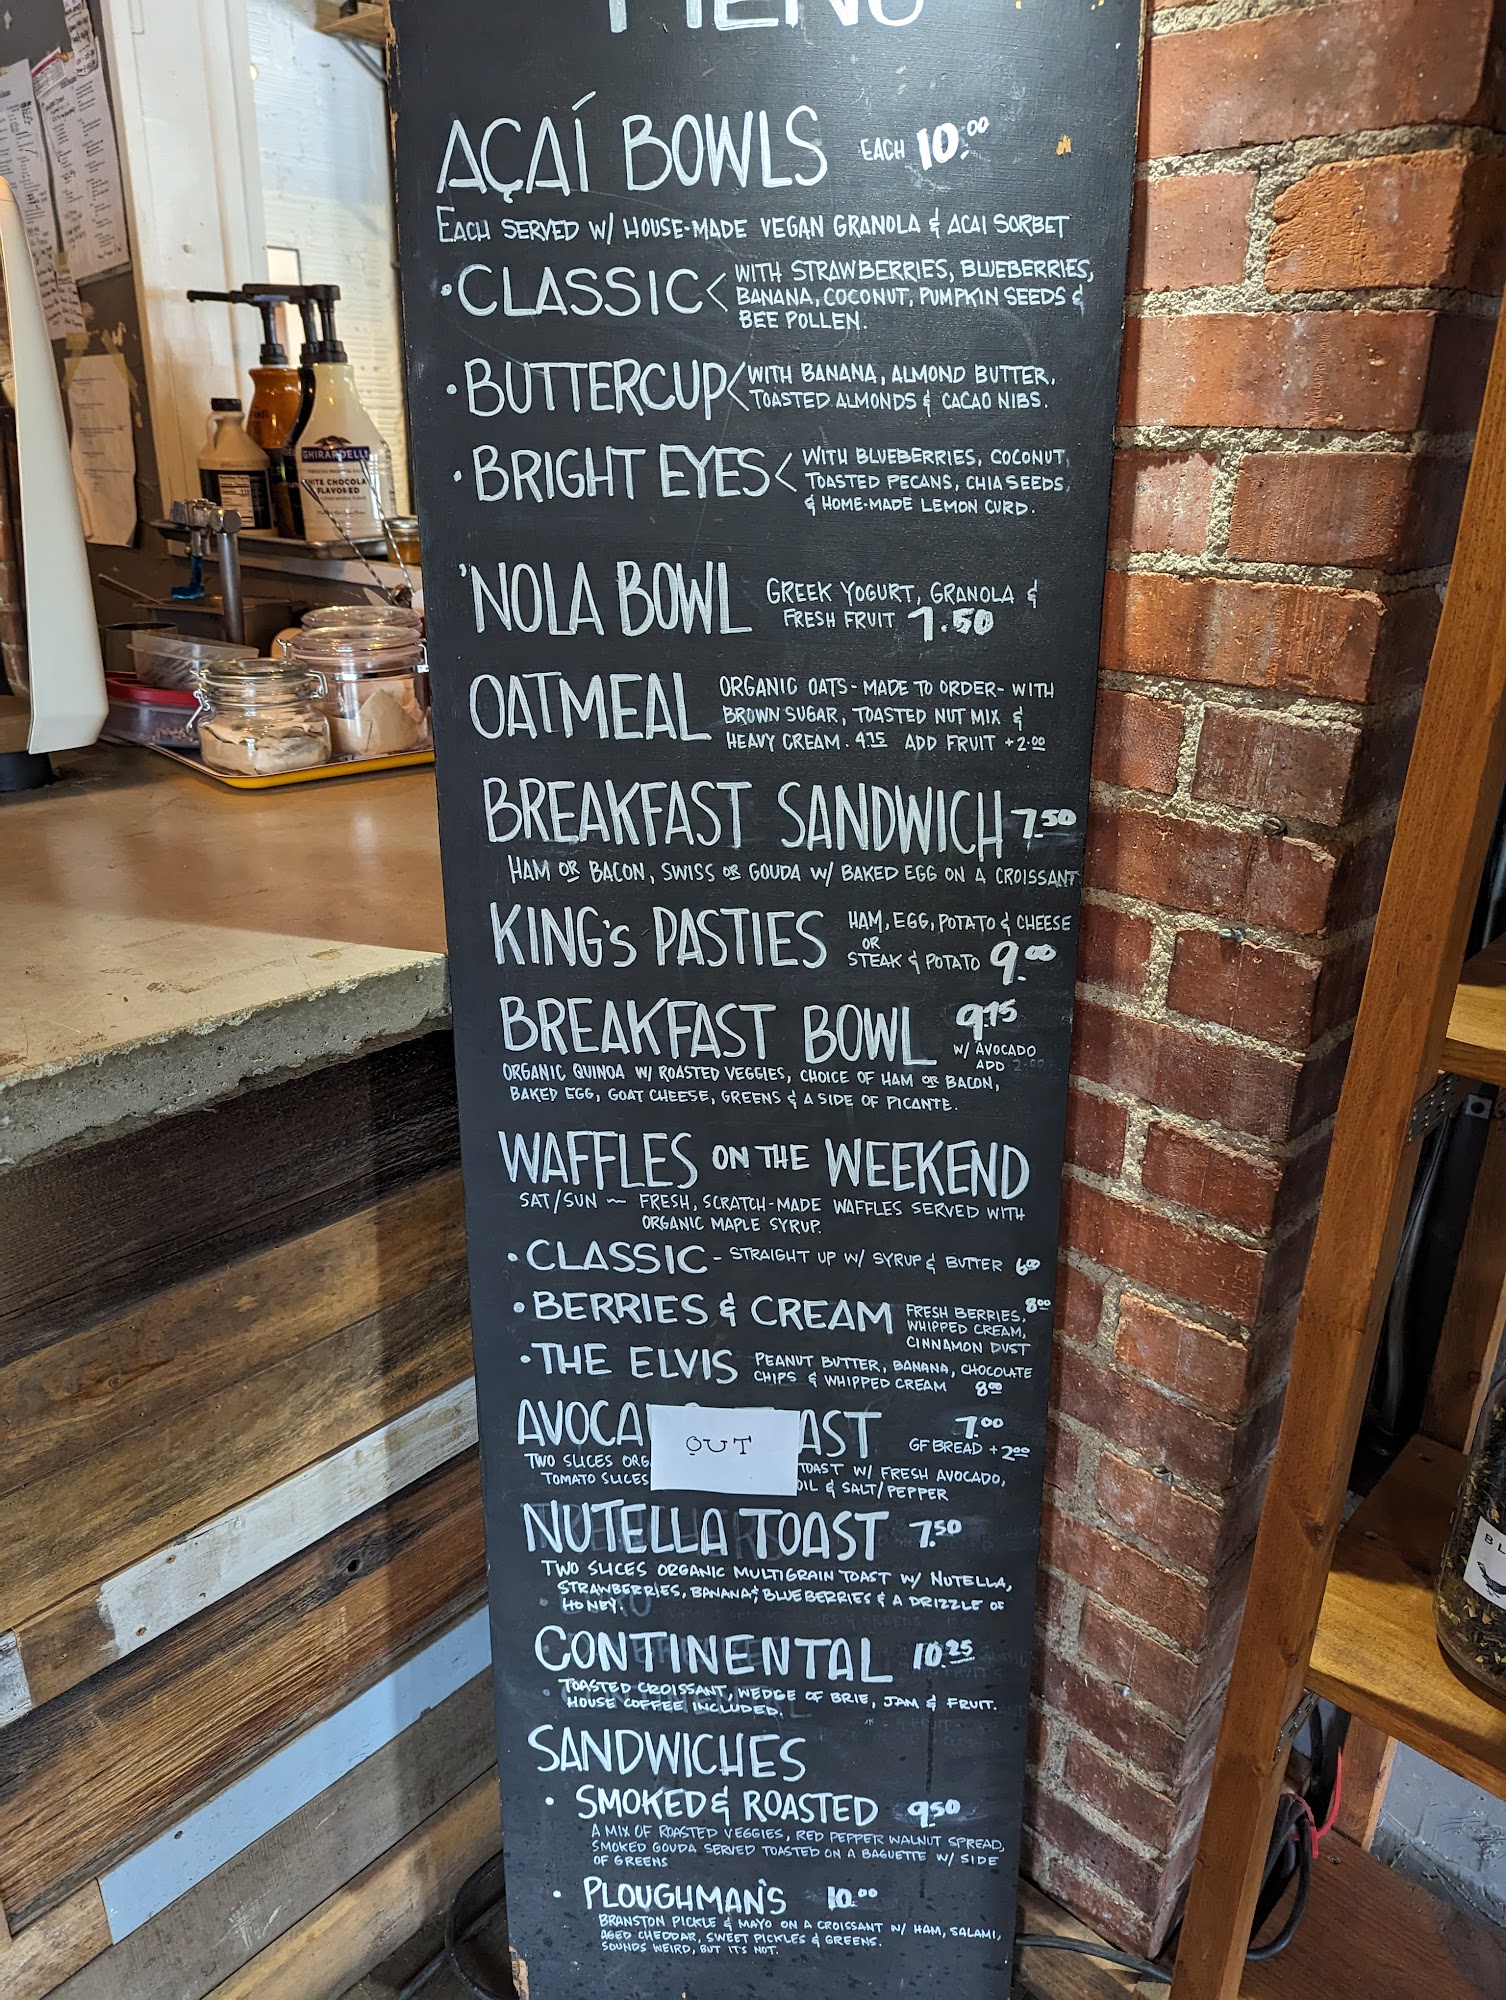 MENU
AÇAÍ BOWLS EACH 10.00
EACH SERVED W/ HOUSE-MADE VEGAN GRANOLA & ACAI SORBET
• CLASSIC < WITH STRAWBERRIES, BLUEBERRIES,
BANANA, COCONUT, PUMPKIN SEEDS &
BEE POLLEN.
• BUTTERCUP < WITH BANANA, ALMOND BUTTER,
TOASTED ALMONDS & CACAO NIBS.
• BRIGHT EYES < WITH BLUEBERRIES, COCONUT,
TOASTED PECANS, CHIA SEEDS,
& HOME-MADE LEMON CURD.
'NOLA BOWL GREEK YOGURT, GRANOLA &
FRESH FRUIT 7.50
OATMEAL ORGANIC OATS - MADE TO ORDER - WITH
BROWN SUGAR, TOASTED NUT MIX &
HEAVY CREAM. 4.75 ADD FRUIT +2.00
BREAKFAST SANDWICH 7.50
HAM OR BACON, SWISS OR GOUDA W/ BAKED EGG ON A CROISSANT
KING'S PASTIES HAM, EGG, POTATO & CHEESE
OR
STEAK & POTATO 9.00
BREAKFAST BOWL 9.75
W/ AVOCADO
ADD 2.00
ORGANIC QUINOA W/ ROASTED VEGGIES, CHOICE OF HAM OR BACON,
BAKED EGG, GOAT CHEESE, GREENS & A SIDE OF PICANTE.
WAFFLES ON THE WEEKEND
SAT/SUN ~ FRESH, SCRATCH-MADE WAFFLES SERVED WITH
ORGANIC MAPLE SYRUP.
• CLASSIC - STRAIGHT UP W/ SYRUP & BUTTER 6.00
• BERRIES & CREAM FRESH BERRIES, 8.00
WHIPPED CREAM,
CINNAMON DUST
• THE ELVIS PEANUT BUTTER, BANANA, CHOCOLATE
CHIPS & WHIPPED CREAM 8.00
AVOCA OUT AST 7.00
GF BREAD +2.00
TWO SLICES ORG TOAST W/ FRESH AVOCADO,
TOMATO SLICES OIL & SALT/PEPPER
NUTELLA TOAST 7.50
TWO SLICES ORGANIC MULTIGRAIN TOAST W/ NUTELLA,
STRAWBERRIES, BANANA, BLUEBERRIES & A DRIZZLE OF
HONEY.
CONTINENTAL 10.25
TOASTED CROISSANT, WEDGE OF BRIE, JAM & FRUIT.
HOUSE COFFEE INCLUDED.
SANDWICHES
• SMOKED & ROASTED 9.50
A MIX OF ROASTED VEGGIES, RED PEPPER WALNUT SPREAD,
SMOKED GOUDA SERVED TOASTED ON A BAGUETTE W/ SIDE
OF GREENS
• PLOUGHMAN'S 10.00
BRANSTON PICKLE & MAYO ON A CROISSANT W/ HAM, SALAMI,
AGED CHEDDAR, SWEET PICKLES & GREENS.
SOUNDS WEIRD, BUT IT'S NOT.
GHIRARDELLI
WHITE CHOCOLA
FLAVORED
BL